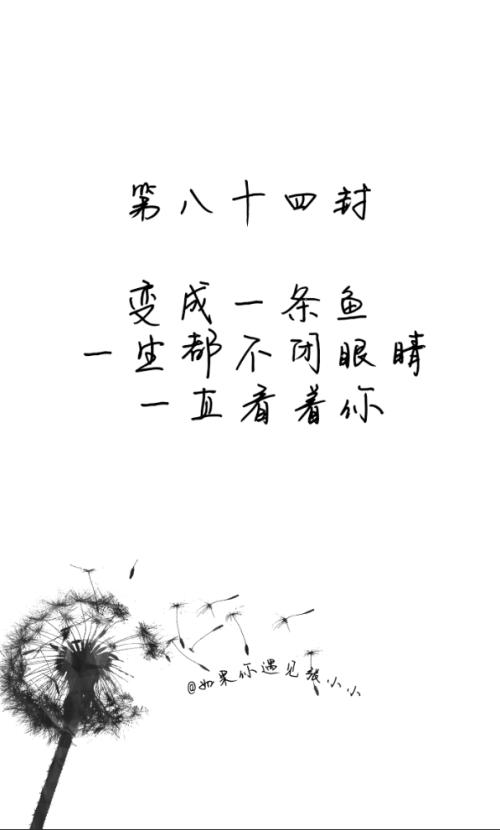 第八十四封
变成一条鱼
一生都不闭眼睛
一直看着你
@如果你遇见张小小